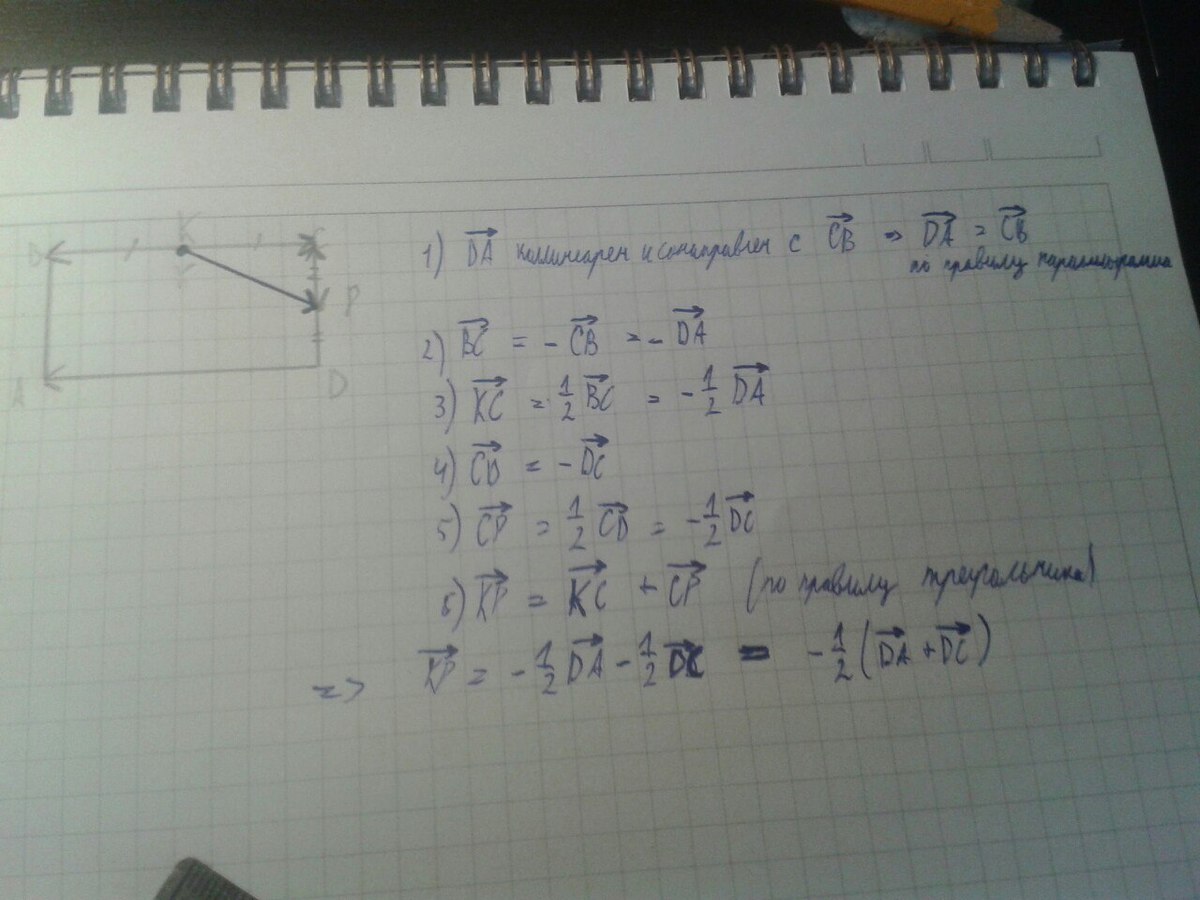 B K C
P
A D
1) $\overrightarrow{DA}$ коллинеарен и сонаправлен с $\overrightarrow{CB}$ ⇒ $\overrightarrow{DA}$ = $\overrightarrow{CB}$
по правилу параллелограмма
2) $\overrightarrow{BC}$ = - $\overrightarrow{CB}$ = - $\overrightarrow{DA}$
3) $\overrightarrow{KC}$ = $\frac{1}{2}$ $\overrightarrow{BC}$ = - $\frac{1}{2}$ $\overrightarrow{DA}$
4) $\overrightarrow{CD}$ = - $\overrightarrow{DC}$
5) $\overrightarrow{CP}$ = $\frac{1}{2}$ $\overrightarrow{CD}$ = - $\frac{1}{2}$ $\overrightarrow{DC}$
6) $\overrightarrow{KP}$ = $\overrightarrow{KC}$ + $\overrightarrow{CP}$ (по правилу треугольника)
=> $\overrightarrow{KP}$ = - $\frac{1}{2}$ $\overrightarrow{DA}$ - $\frac{1}{2}$ $\overrightarrow{DC}$ = - $\frac{1}{2}$ ($\overrightarrow{DA}$ + $\overrightarrow{DC}$)